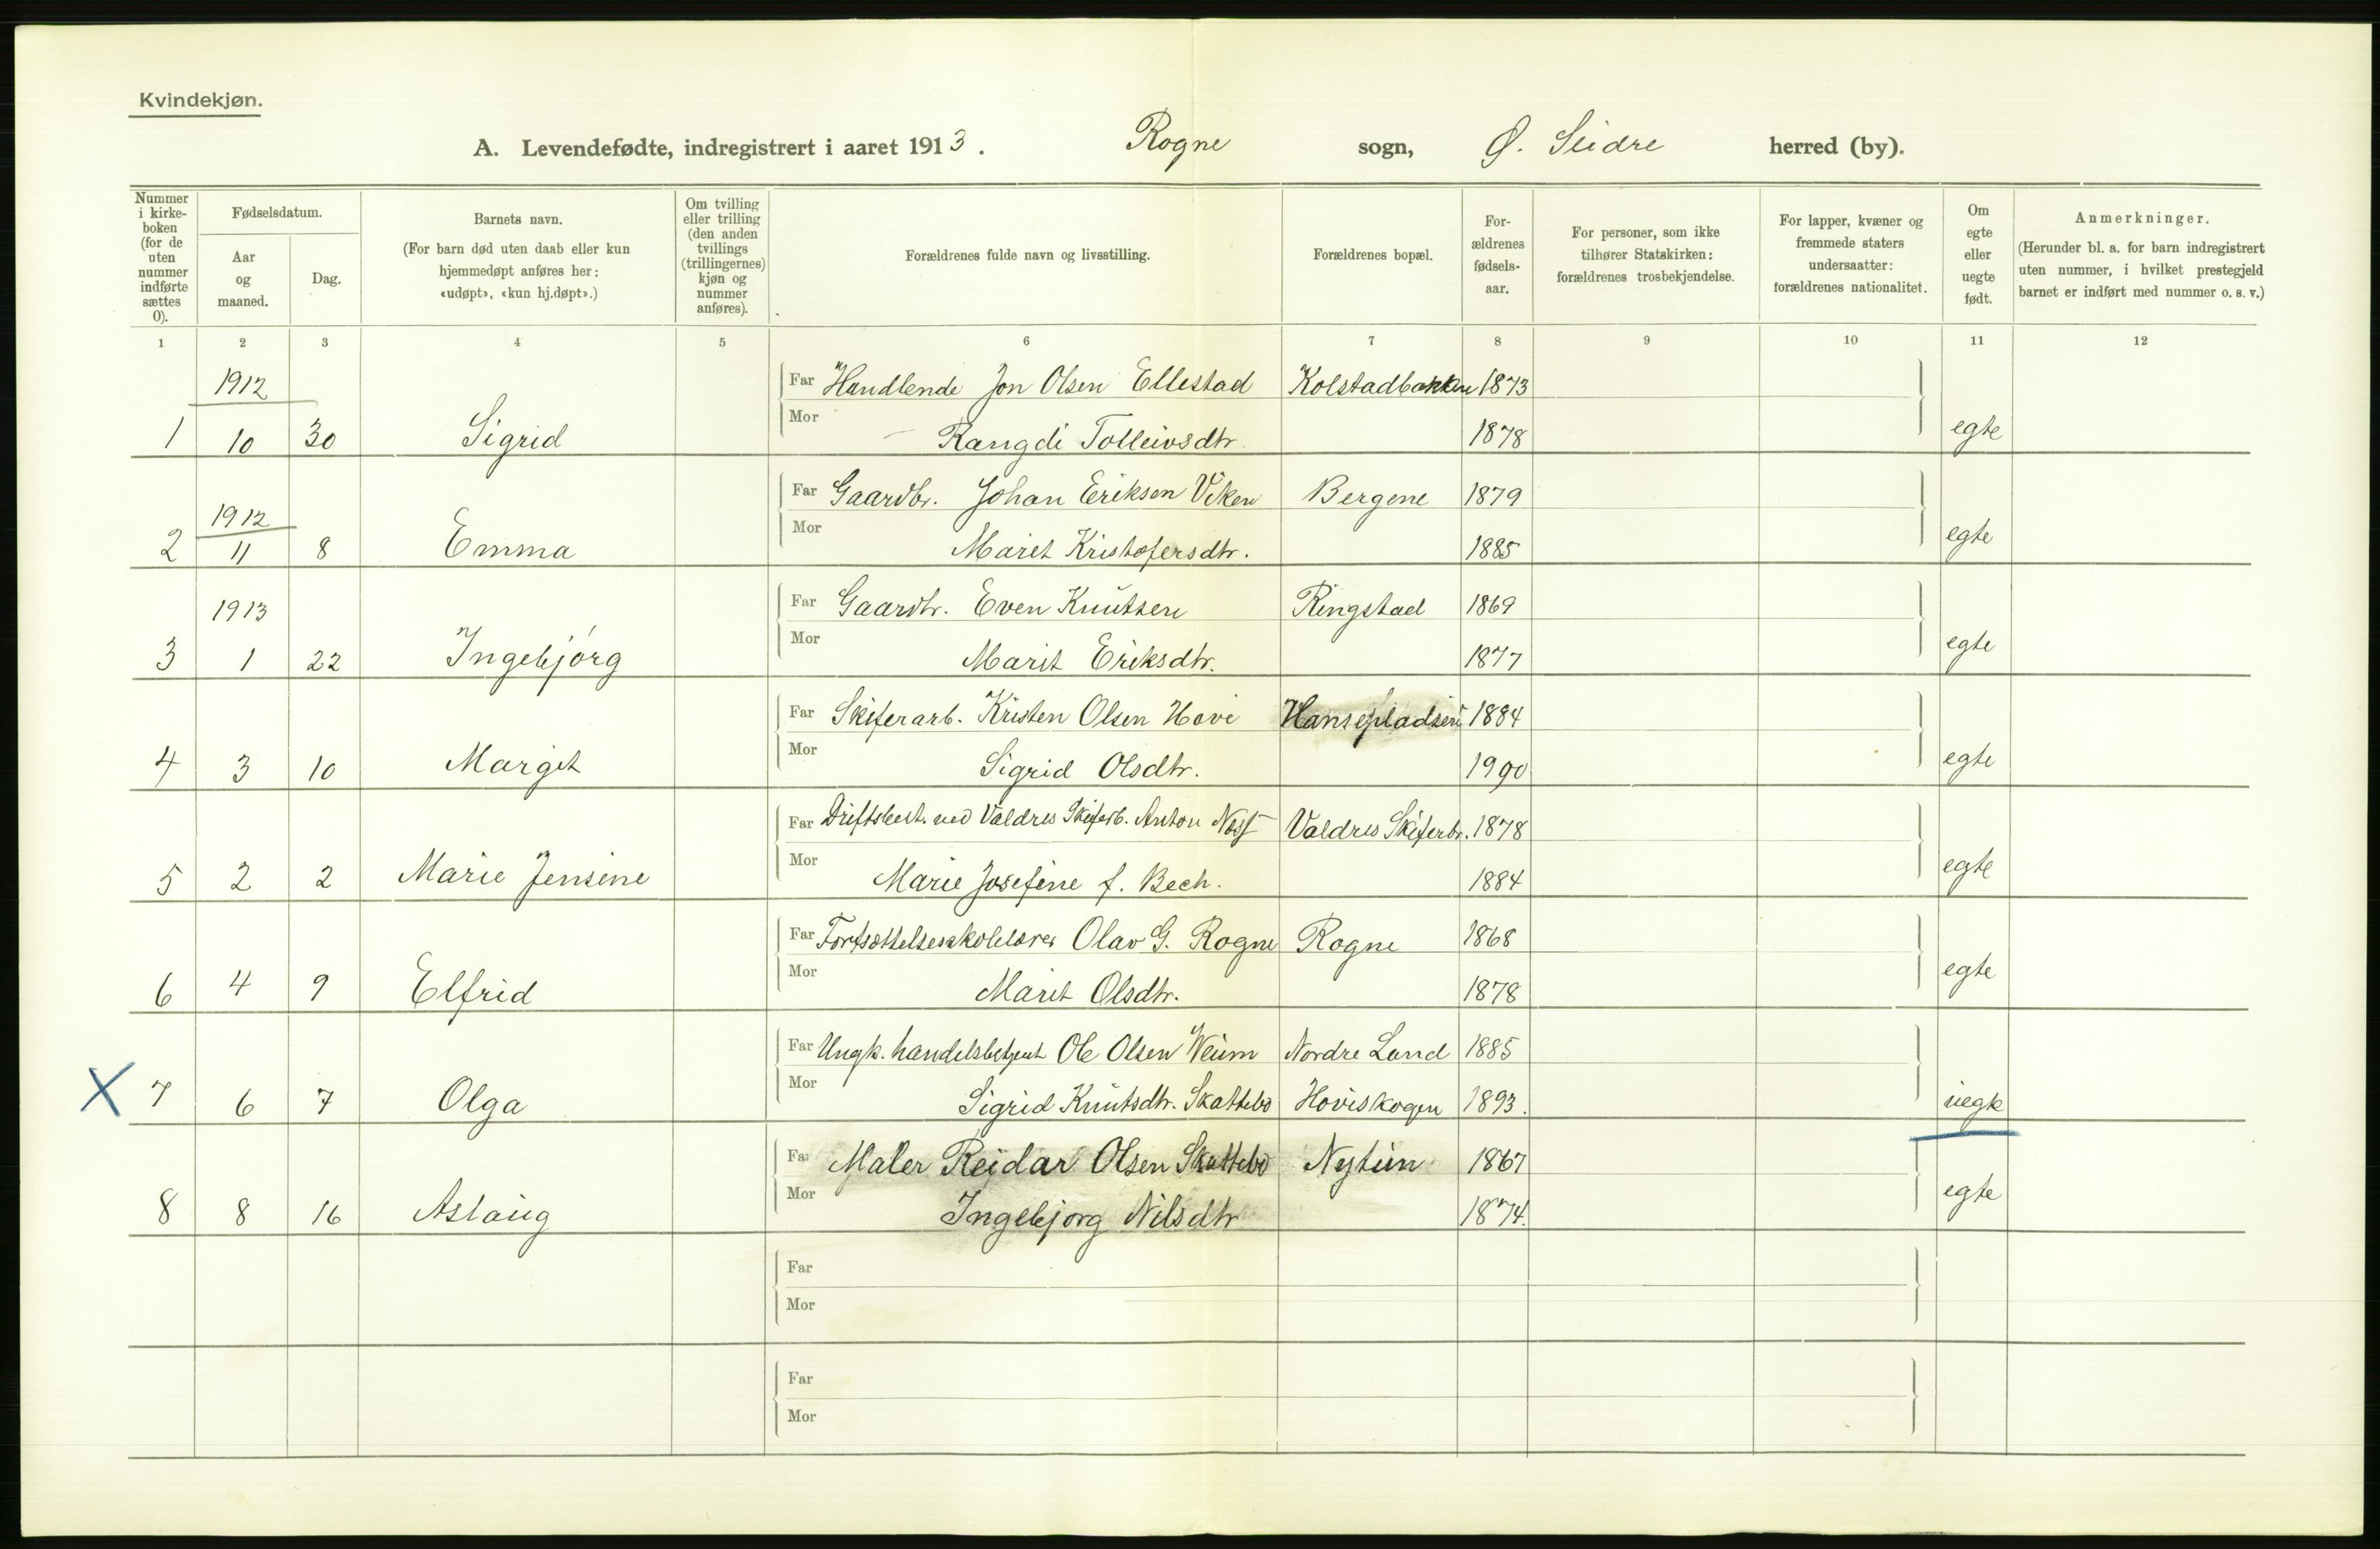 Kvindekjøn.
A. Levendefødte, indregistrert i aaret 1913. Rogne sogn, Ø. Slidre herred (by).
Nummer i kirke-boken (for de uten nummer indførte sættes 0).
Fødselsdatum.
Aar og maaned.
Dag.
Barnets navn.
(For barn død uten daab eller kun hjemmedøpt anføres her: «udøpt», «kun hj.døpt».)
Om tvilling eller trilling (den anden tvillings (trillingernes) kjøn og nummer anføres).
Forældrenes fulde navn og livsstilling.
Forældrenes bopæl.
For-ældrenes fødsels-aar.
For personer, som ikke tilhører Statskirken: forældrenes trosbekjendelse.
For lapper, kvæner og fremmede staters undersaatter: forældrenes nationalitet.
Om egte eller uegte født.
Anmerkninger.
(Herunder bl. a. for barn indregistrert uten nummer, i hvilket prestegjeld barnet er indført med nummer o. s. v.)
1 2 3 4 5 6 7 8 9 10 11 12
1912 Far Handlende Jon Olsen Ellestad Kolstadbakken 1873
1 10 30 Sigrid Mor Rangdi Tolleivsdtr. 1878 egte
1912 Far Gaardbr. Johan Eriksen Viken Bergene 1879
2 11 8 Emma Mor Marit Kristofersdtr. 1885 egte
1913 Far Gaardbr. Even Knutsen Ringstad 1869
3 1 22 Ingebjørg Mor Marit Eriksdtr. 1877 egte
Far Skiferarb. Kristen Olsen Hovi Hansepladsen 1884
4 3 10 Margit Mor Sigrid Olsdtr. 1990 egte
Far Driftsbest. ved Valdres Skiferb. Anton Næss Valdres Skiferbr. 1878
5 2 2 Marie Jensine Mor Marie Josefine f. Bech. 1884 egte
Far Fortsættelsesskolelærer Olav G. Rogne Rogne 1868
6 4 9 Elfrid Mor Marit Olsdtr. 1878 egte
Far Ungk. handelsbetjent Ole Olsen Weium Nordre Land 1885
X 7 6 7 Olga Mor Sigrid Knutsdtr. Skattebo Hoviskogen 1893. uegte
Far Maler Reidar Olsen Skattebo Nytun 1867
8 8 16 Aslaug Mor Ingebjørg Nilsdtr 1874. egte
Far
Mor
Far
Mor